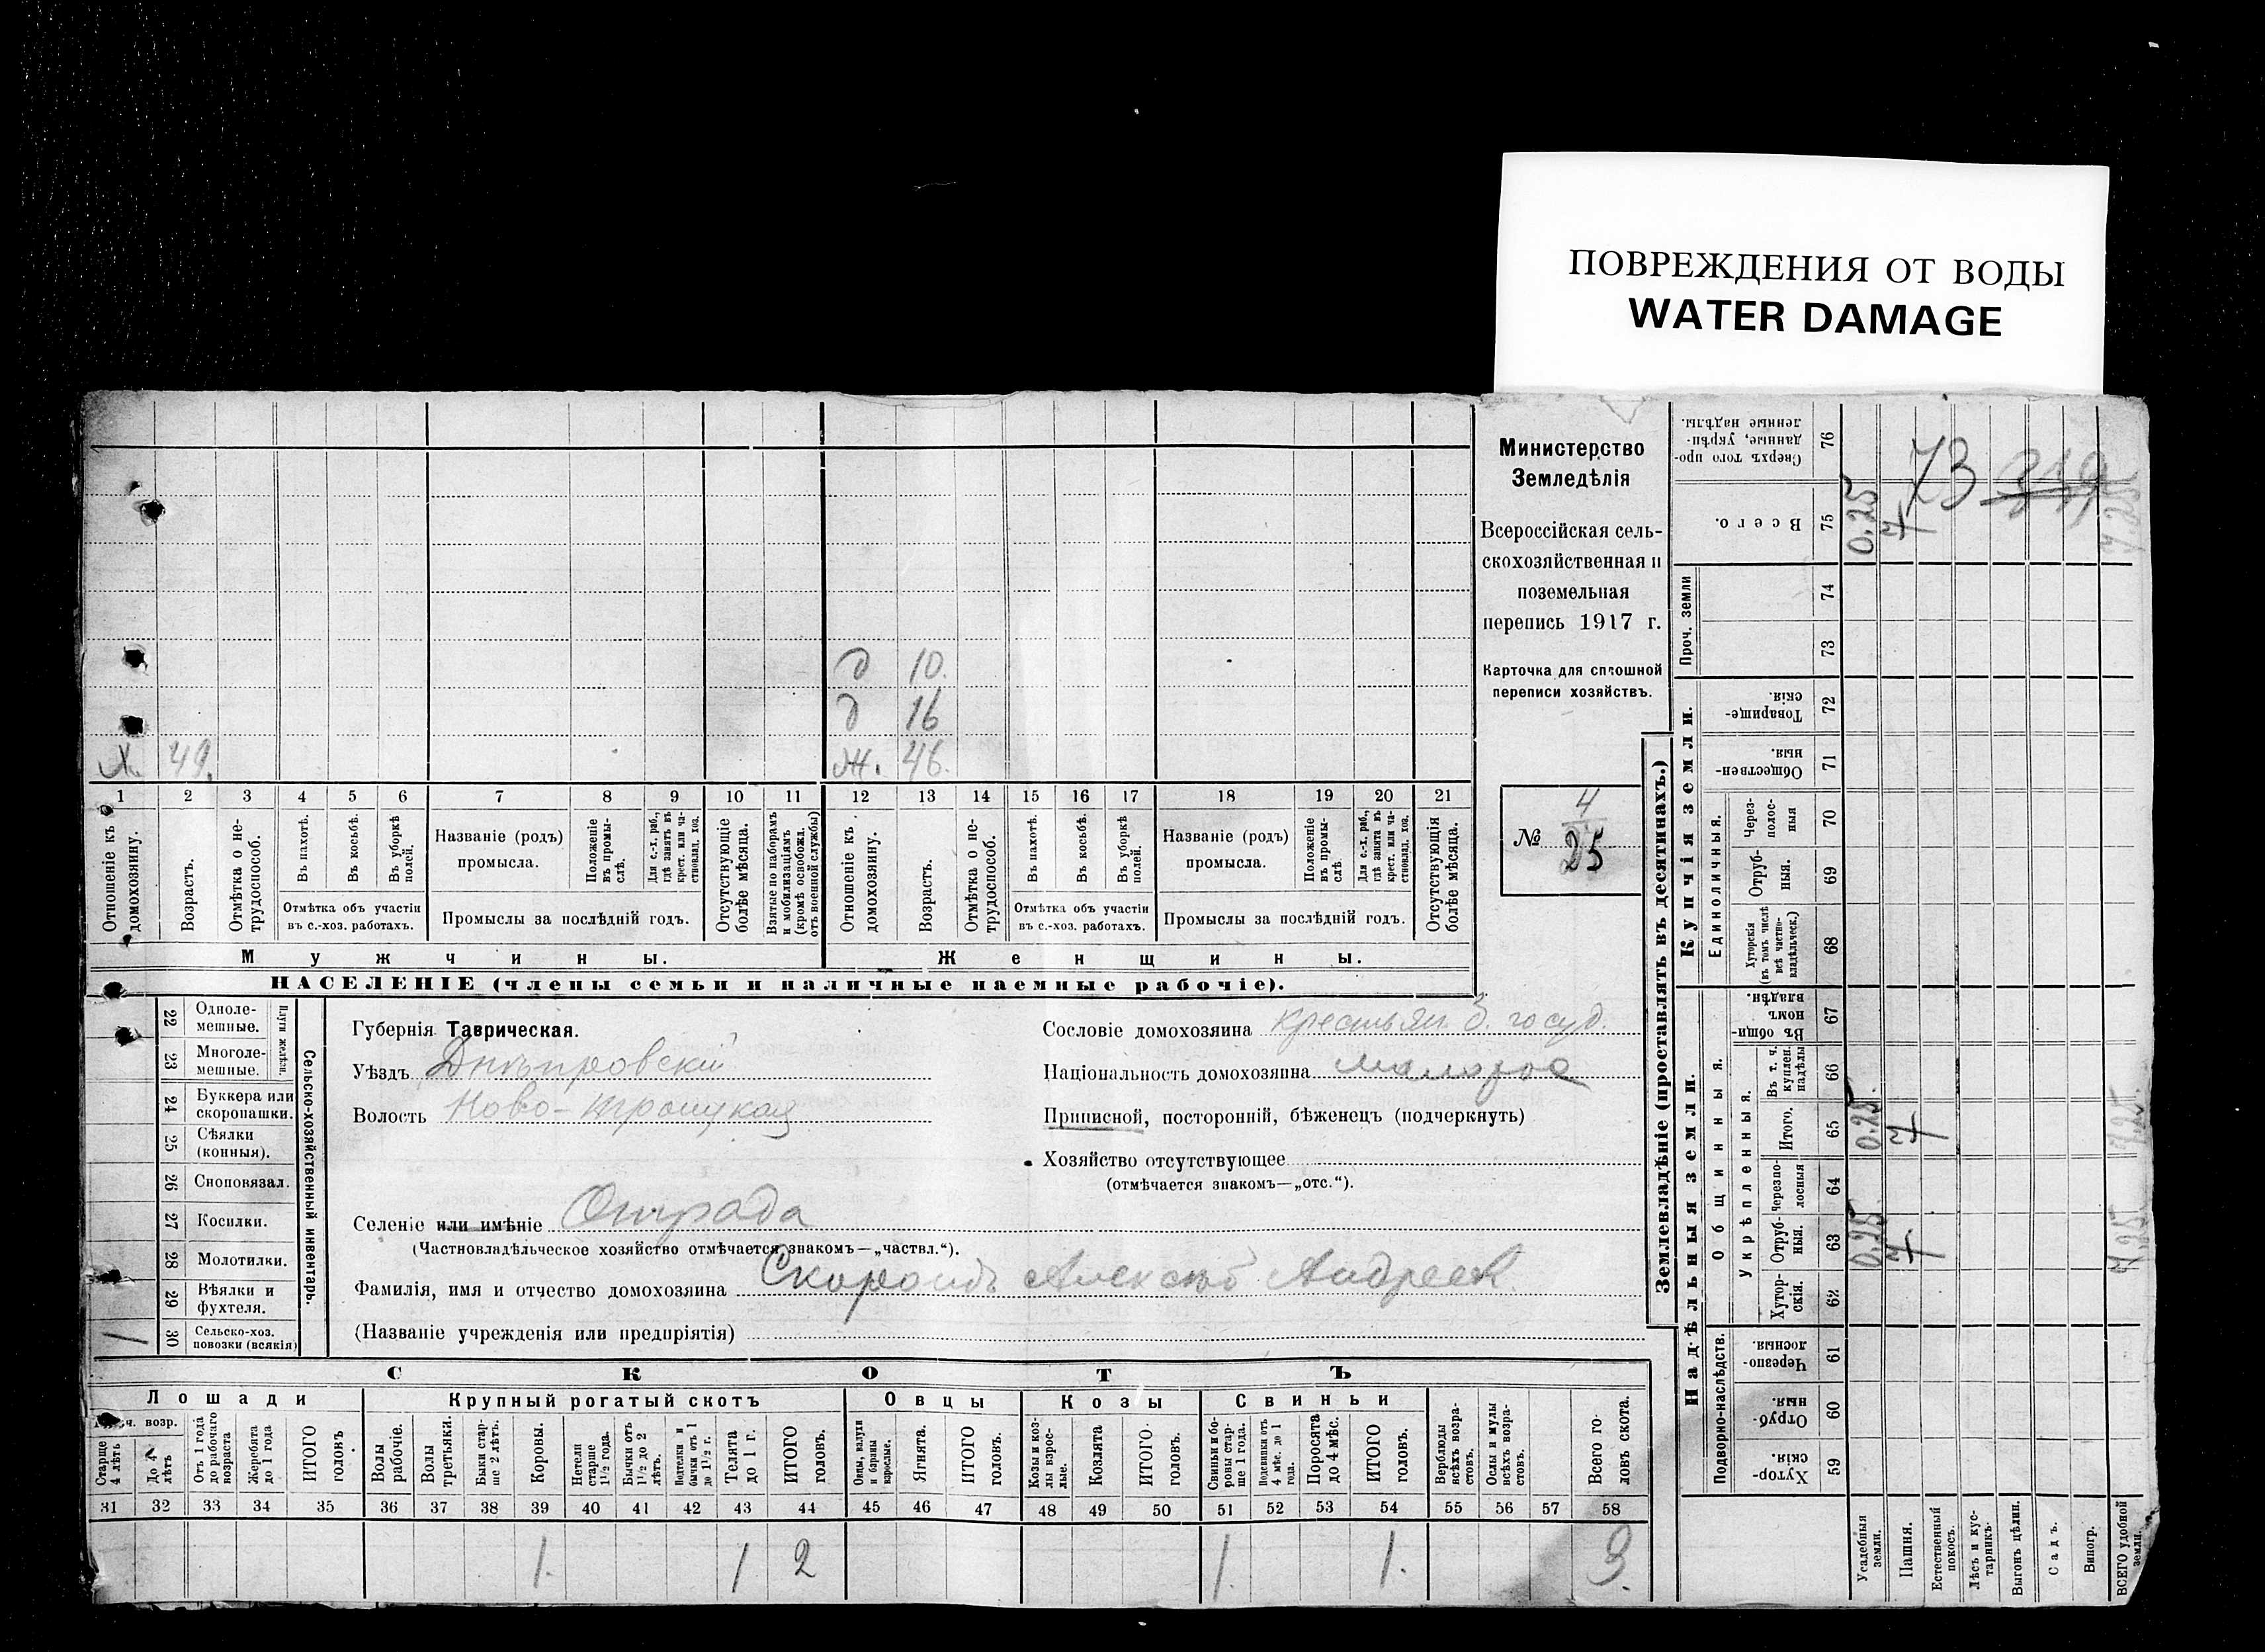 ПОВРЕЖДЕНИЯ ОТ ВОДЫ
WATER DAMAGE
Министерство
Земледѣлія
Всероссійская сель-
скохозяйственная и
поземельная
перепись 1917 г.
Карточка для сплошной
переписи хозяйствъ.
№ 4
25
д 10.
д 16
х. 49. ж. 46.
1 2 3 4 5 6 7 8 9 10 11 12 13 14 15 16 17 18 19 20 21
Отношеніе къ домохозяину.
Возрастъ.
Отмѣтка о не-трудоспособ.
Въ пахотѣ.
Въ косьбѣ.
Въ уборкѣ полей.
Отмѣтка объ участіи
въ с.-хоз. работахъ.
Названіе (родъ)
промысла.
Положеніе въ промы-слѣ.
Для с.-х. раб., гдѣ занятъ въ крест. или ча-стновлад. хоз.
Промыслы за послѣдній годъ.
Отсутствующіе болѣе мѣсяца.
Взятые по наборамъ и мобилизаціямъ (кромѣ освобожд. отъ военной службы)
Отношеніе къ домохозяину.
Возрастъ.
Отмѣтка о не-трудоспособ.
Въ пахотѣ.
Въ косьбѣ.
Въ уборкѣ полей.
Отмѣтка объ участіи
въ с.-хоз. работахъ.
Названіе (родъ)
промысла.
Положеніе въ промы-слѣ.
Для с.-х. раб., гдѣ занята въ крест. или ча-стновлад. хоз.
Промыслы за послѣдній годъ.
Отсутствующія болѣе мѣсяца.
Мужчины. Женщины.
НАСЕЛЕНІЕ (члены семьи и наличные наемные рабочіе).
Сельско-хозяйственный инвентарь.
Плуги желѣзн.
22 Одноле-мешные.
23 Многоле-мешные.
24 Буккера или скоропашки.
25 Сѣялки (конныя).
26 Сноповязал.
27 Косилки.
28 Молотилки.
29 Вѣялки и фухтеля.
1 30 Сельско-хоз. повозки (всякія)
Губернія Таврическая.
Уѣздъ Днѣпровскій
Волость Ново-Троицкая
Селеніе или имѣніе Отрада
(Частновладѣльческое хозяйство отмѣчается знакомъ—„частвл.“).
Фамилія, имя и отчество домохозяина Алексѣй Андреев.
(Названіе учрежденія или предпріятія)
Сословіе домохозяина крестьян. б. госуд.
Національность домохозяина малорос
Приписной, посторонній, бѣженецъ (подчеркнуть)
Хозяйство отсутствующее
(отмѣчается знакомъ—„отс.“).
СКОТЪ
Лошади Крупный рогатый скотъ Овцы Козы Свиньи
возр.
Старше 4 лѣтъ
До 4 лѣтъ
Отъ 1 года до рабочаго возраста
Жеребята до 1 года
ИТОГО головъ.
Волы рабочіе.
Волы третьяки.
Быки стар-ше 2 лѣтъ.
Коровы.
Нетели старше 1½ года.
Бычки отъ 1½ до 2 лѣтъ.
Подтелки и бычки отъ 1 до 1½ г.
Телята до 1 г.
ИТОГО головъ.
Овцы, валухи и бараны взрослые.
Ягнята.
ИТОГО головъ.
Козы и коз-лы взрос-лые.
Козлята
ИТОГО головъ.
Свиньи и бо-ровы стар-ше 1 года.
Подсвинки отъ 4 мѣс. до 1 года.
Поросята до 4 мѣс.
ИТОГО головъ.
Верблюды всѣхъ возра-стовъ.
Ослы и мулы всѣхъ возра-стовъ.
Всего го-ловъ скота.
31 32 33 34 35 36 37 38 39 40 41 42 43 44 45 46 47 48 49 50 51 52 53 54 55 56 57 58
1. 1 2 1. 1. 3.
Землевладѣніе (проставлять въ десятинахъ.)
Купчія земли.
Надѣльныя земли.
Сверхъ того про-данные, укрѣп-ленные надѣлы. 76
73
Всего. 75 0.25 7 7.25
Проч. земли 74
73
Товарище-скія. 72
Обществен-ныя. 71
Единоличныя.
Через-полос-ныя 70
Отруб-ныя. 69
Хуторскія (въ томъ числѣ всѣ частно-владѣльческ.) 68
Общинныя.
Въ общи-номъ владѣн. 67
Укрѣпленныя.
Въ т. ч. куплен. надѣлы 66
Итого. 65 0.25. 7 7.25.
Черезпо-лосныя 64
Отруб-ныя. 63 0.25. 7 7.25
Хутор-скія. 62
Подворно-наслѣдств.
Черезпо-лосныя. 61
Отруб-ныя. 60
Хутор-скія. 59
Усадебныя земли.
Пашня.
Естественный покосъ.
Лѣсъ и кус-тарникъ.
Выгонъ цѣлин.
Садъ.
Виногр.
ВСЕГО удобной земли.